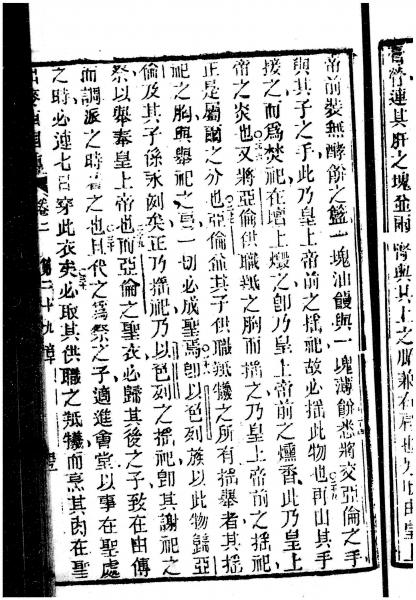 連其肝之塊並兩腎與其上之脂兼右肩也又
帝前裝無酵餅之籃一塊油饅與一塊薄餅悉將交亞倫之手
與其子之手此乃皇上帝前之揺祀故必揺此物也再由其手
接之而爲焚祀在壇上燬之卽乃皇上帝前之燻香此乃皇上
帝之炎也又將亞倫供職羝之胸而揺之乃皇上帝前之揺祀
正是屬爾之分也亞倫並其子供職羝犧之所有揺舉者其揺
祀之胸與舉祀之肩一切必成聖焉卽以色列族以此物歸亞
倫及其子係永刻矣正乃揺祀乃以色列之揺祀卽其謝祀之
祭以舉奉皇上帝也而亞倫之聖衣必歸其後之子致在由傳
而調派之時着之也且代之爲祭之子適進會堂以事在聖處
之時必連七日穿此衣矣必取其供職之羝犧而烹其肉在聖
卷二 第二十九章